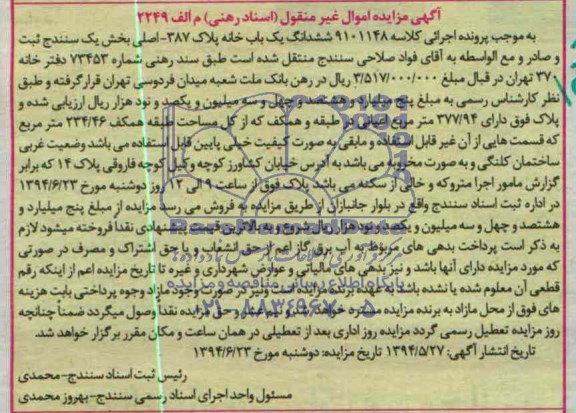 آگهی مزایده اموال غیر منقول (اسناد رهنی) م الف ۲۲۴۹
به موجب پرونده اجرائی کلاسه ۹۱۰۱۱۴۸ ششدانگ یک باب خانه پلاک ۳۸۷-اصلی بخش یک سنندج ثبت
و صادر و مع الواسطه به آقای فواد صلاحی سنندج منتقل شده است طبق سند رهنی شماره ۷۳۴۵۳ دفتر خانه
۳۷ تهران در قبال مبلغ ۳/۵۱۷/۰۰۰/۰۰۰ ریال در رهن بانک ملت شعبه میدان فردوسی تهران قرارگرفته و طبق
نظر کارشناس رسمی به مبلغ پنج میلیارد و هشتصد و چهل و سه میلیون و یکصد و نود هزار ریال ارزیابی شده و
پلاک فوق دارای ۳۷۷/۹۴ متر مربع اعیانی در طبقه و همکف که از کل مساحت طبقه همکف ۲۳۴/۴۶ متر مربع
که قسمت هایی از آن غیر قابل استفاده و مابقی به صورت کیفیت خیلی پایین قابل استفاده می باشد وضعیت غربی
ساختمان کلنگی و به صورت مخروبه می باشد به آدرس خیابان کشاورز کوچه وکیل کوچه فاروقی پلاک ۱۴ که برابر
گزارش مامور اجرا متروکه و خالی از سکنه می باشد پلاک فوق از ساعت ۹ الی ۱۲ روز دوشنبه مورخ ۱۳۹۴/۶/۲۳
در اداره ثبت اسناد سنندج واقع در بلوار جانبازان از طریق مزایده به فروش می رسد مزایده از مبلغ پنج میلیارد و
هشتصد و چهل و سه میلیون و یکصد و نود هزار ریال شروع و به بالاترین قیمت پیشنهادی نقداً فروخته میشود لازم
به ذکر است پرداخت بدهی های مربوطه به آب برق گاز اعم از حق انشعاب و یا حق اشتراک و مصرف در صورتی
که مورد مزایده دارای آنها باشد و نیز بدهی های مالیاتی و عوارض شهرداری و غیره تا تاریخ مزایده اعم از اینکه رقم
قطعی آن معلوم شده یا نشده باشد به عهده برنده مزایده است ونیز در صورت وجود مازاد وجوه پرداختی بابت هزینه
های فوق از محل مازاد به برنده مزایده مسترد خواهد شد و نیم عشر و حق مزایده نقداً وصول میگردد ضمناً چنانچه
روز مزایده تعطیل رسمی گردد مزایده روز اداری بعد از تعطیلی در همان ساعت و مکان مقرر برگزار خواهد شد.
تاریخ انتشار آگهی: ۱۳۹۴/۵/۲۷ تاریخ مزایده: دوشنبه مورخ ۱۳۹۴/۶/۲۳
رئیس ثبت اسناد سنندج-محمدی
مسئول واحد اجرای اسناد رسمی سنندج-بهروز محمدی
پایگاه اطلاع رسانی مناقصه و مزایده
۰۲۱-۸۸۳۴۹۶۷۰-۵